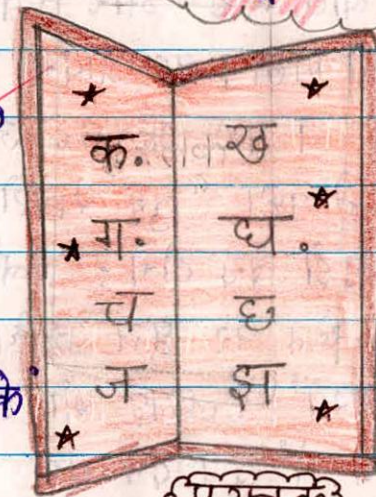 क. ख
ग. घ.
च छ
ज झ
के